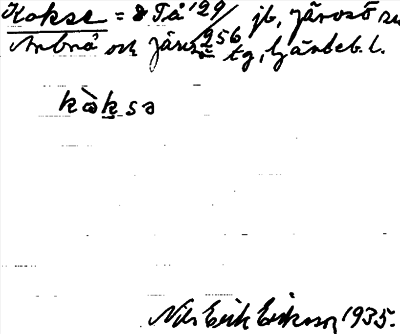 Kokse = Tå 129/956 jb, järvsö sn
Arbrå och järvsö tg, Gävleb. l.
kòksə
Nils Erik Eriksson 1935.